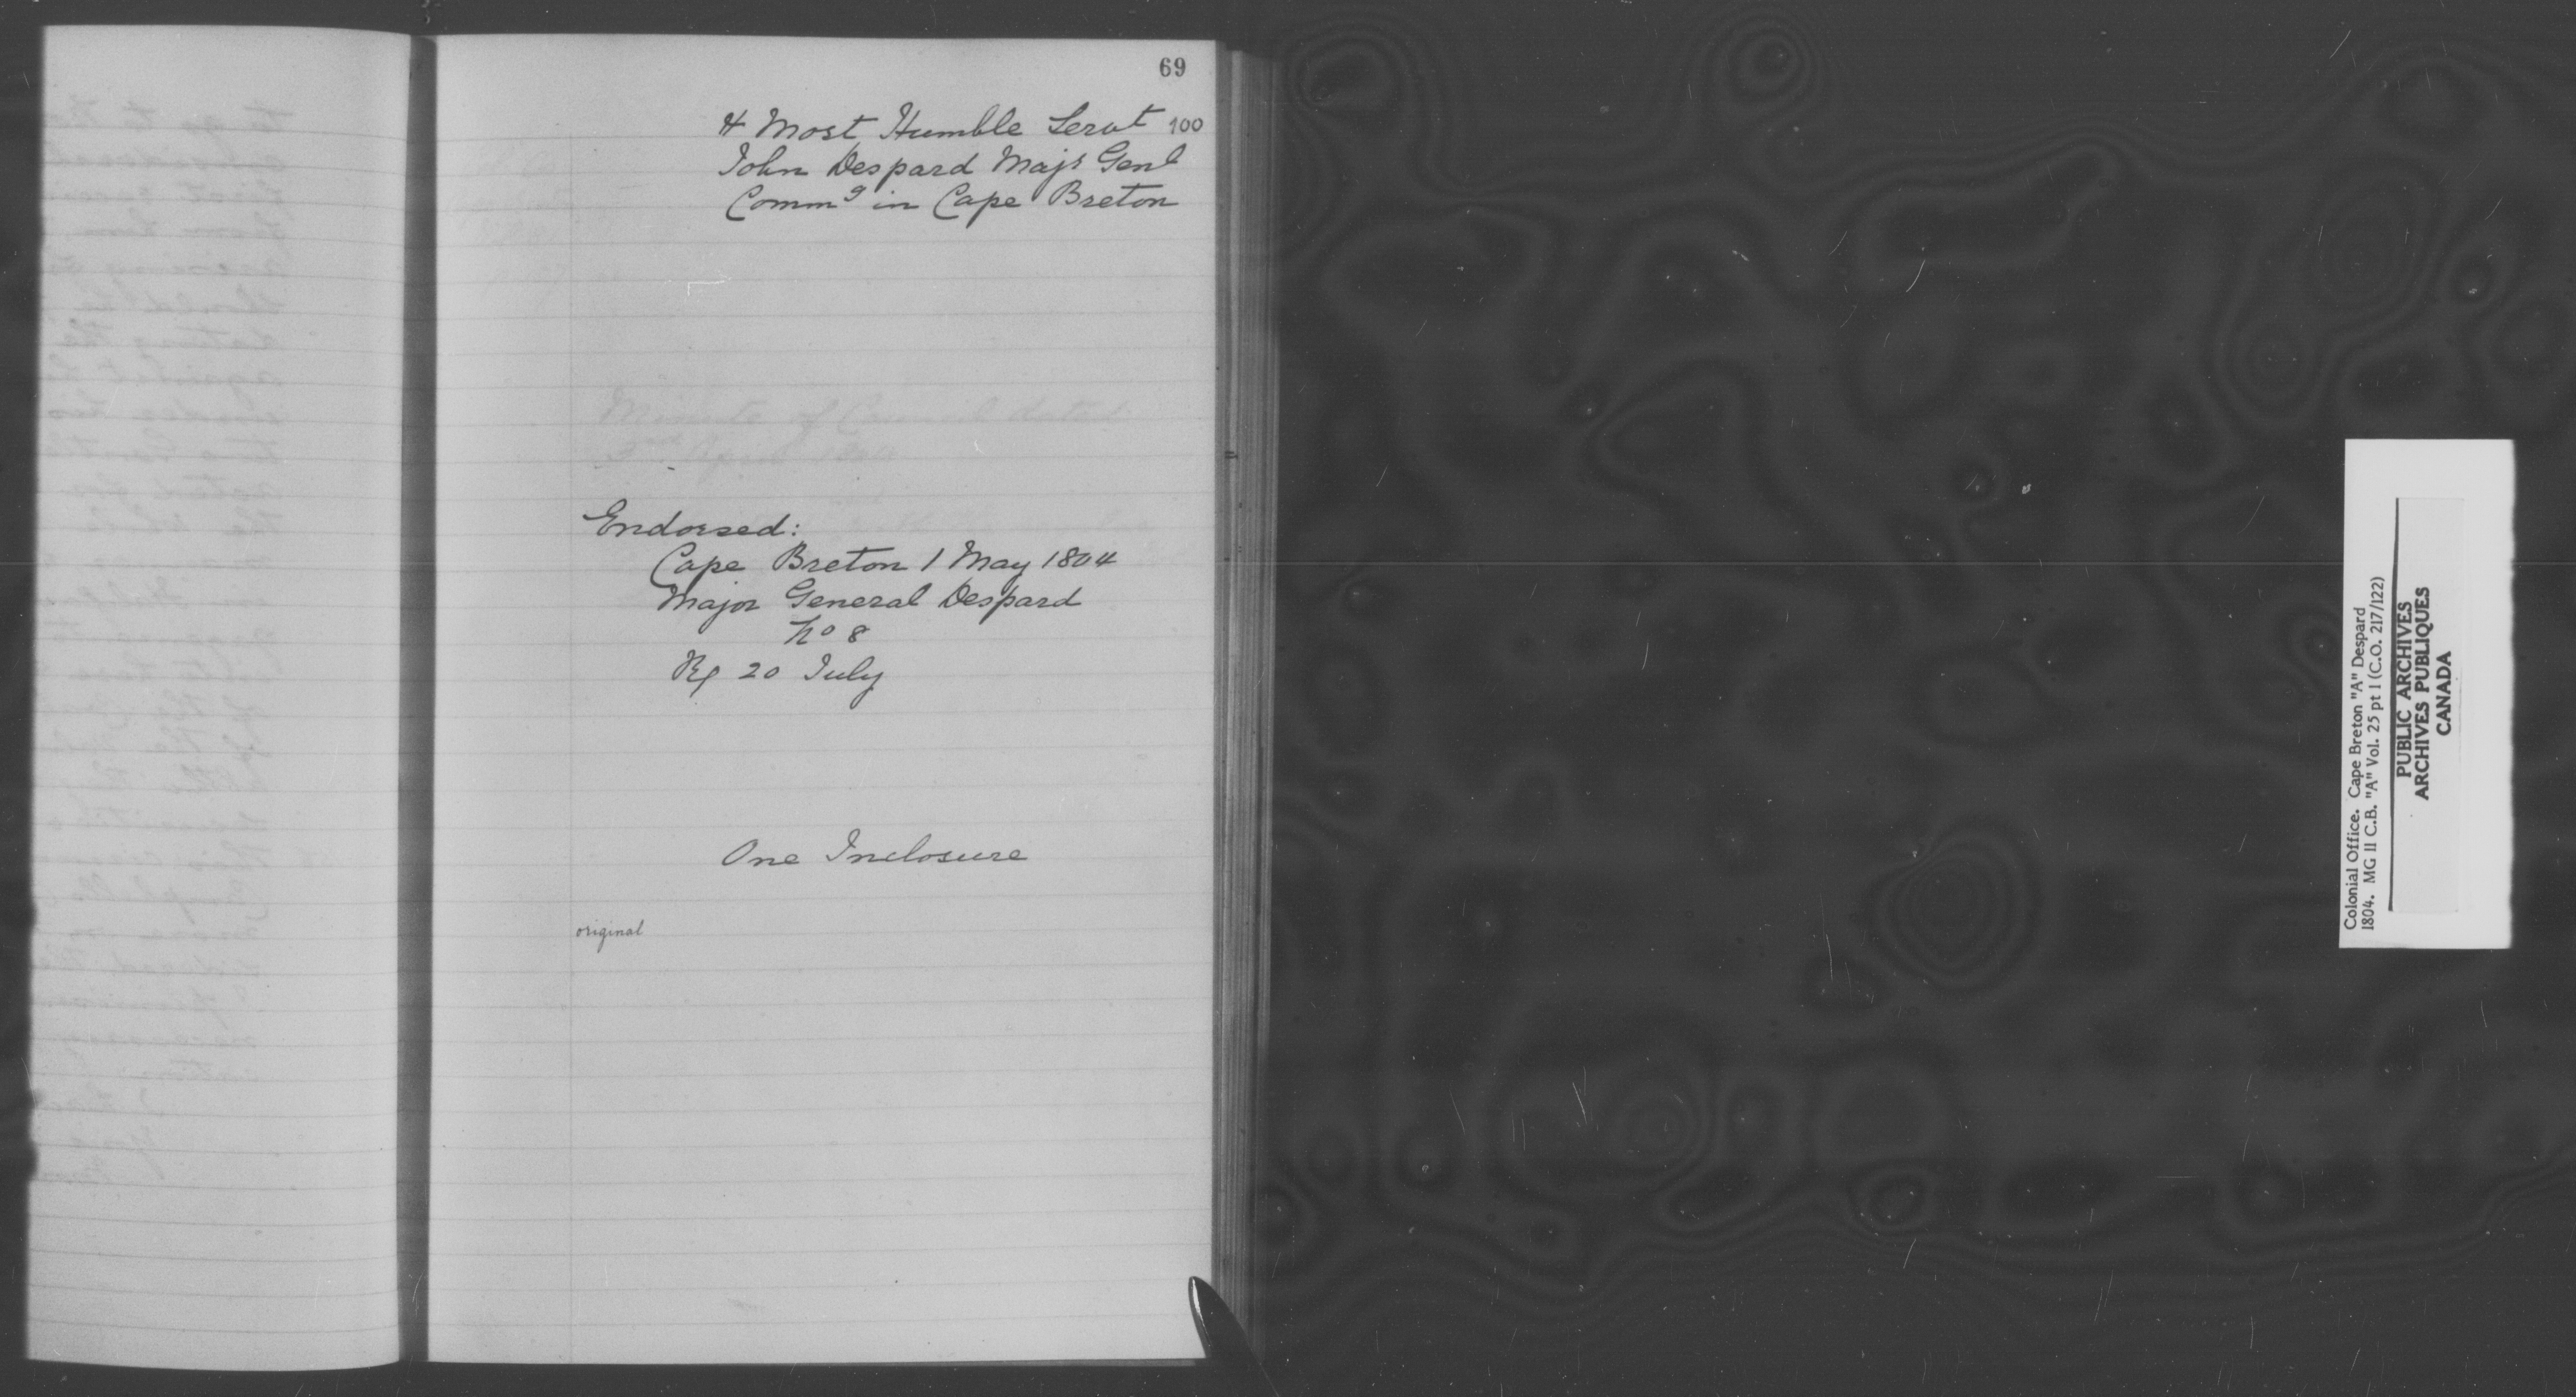 69
& Most Humble Servt 100
John Despard Majr Genl
Commg in Cape Breton
Minute of Council dated
April
Endorsed:
Cape Breton 1 May 1804
Major General Despard
No 8
Rf 20 July
One Inclosure
original
Colonial Office. Cape Breton "A" Despard
1804. MG 11 C.B. "A" Vol. 25 pt 1 (C.O. 217/122)
PUBLIC ARCHIVES
ARCHIVES PUBLIQUES
CANADA